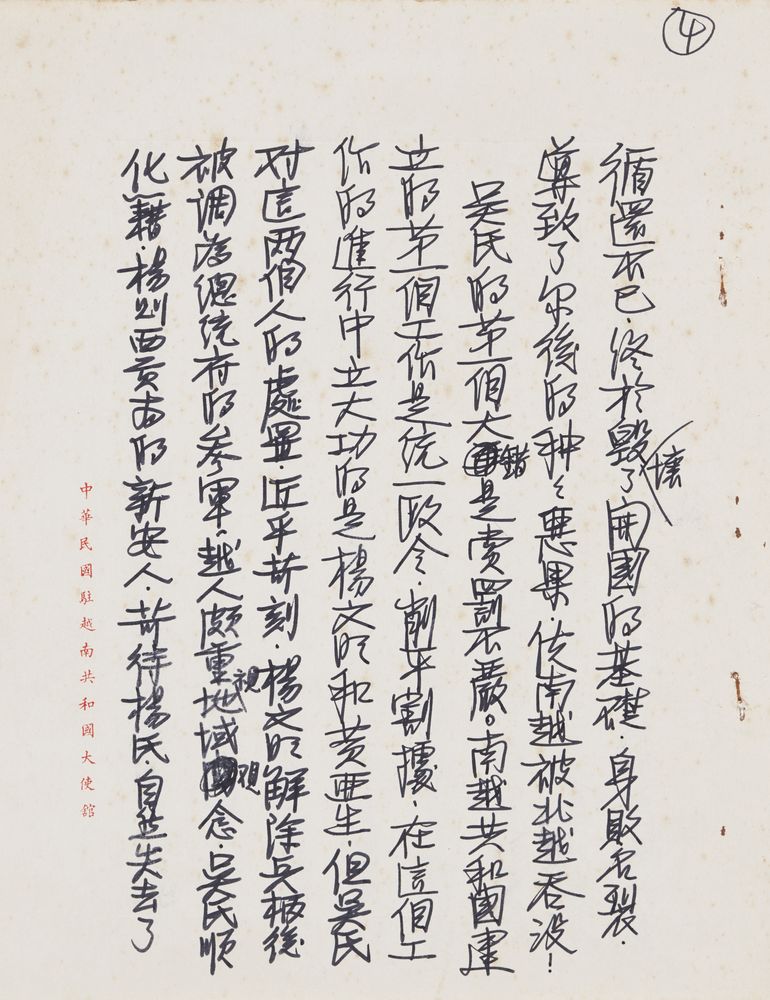 ④
循還不已．終於毀壞了開國的基礎．身敗名裂．
導致了尔後的种々惡果．使南越被北越吞没！
吳氏的第一個大錯是賞罰不嚴。南越共和國建
立的第一個工作是統一政令．削平割據．在這個工
作的進行中立大功的是楊文明和黃亜生．但吳氏
对這两個人的處置．近乎苛刻．楊文明解除兵柄後
被調為總統府的参軍。越人頗重視地域观念．吳氏順
化籍．楊則西貢市的新安人．苛待楊氏．自然失去了
中華民國駐越南共和國大使館